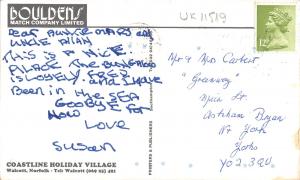 BOULDENS
MATCH COMPANY LIMITED
UK 11519
DEAR AUNTIE MARG and
UNCLE ALAN
THIS IS A NICE
PLACE THE BUNGALOW
IS LOVELY
and I have
Been in the SEA
GOODBYE FOR
NOW
LOVE
Susan
COASTLINE HOLIDAY VILLAGE
Walcott, Norfolk
PRINTERS & PUBLISHERS
Mr & Mrs
"Granway"
Main St
Askham Bryan
Nr York
Yorks
YO2 3QU
12P